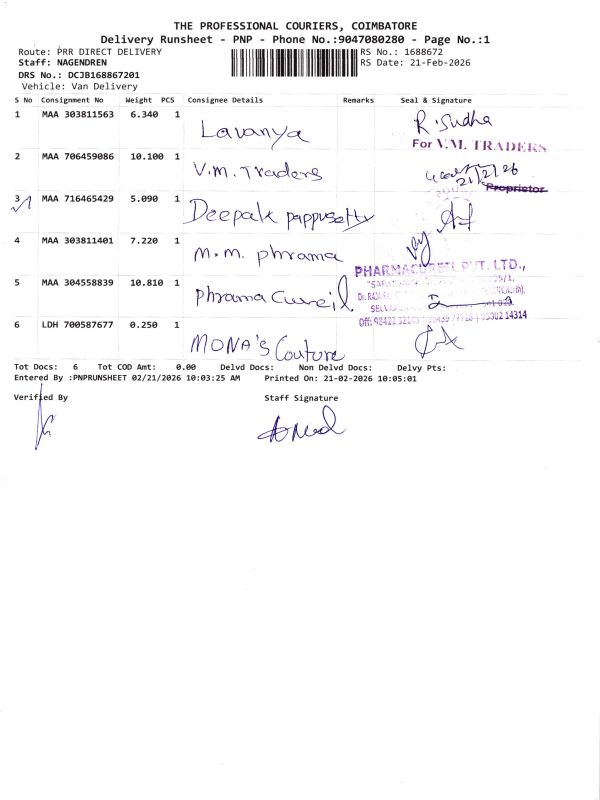 THE PROFESSIONAL COURIERS, COIMBATORE
Delivery Runsheet - PNP - Phone No.:9047080280 - Page No.:1
Route: PRR DIRECT DELIVERY RS No.: 1688672
Staff: NAGENDREN RS Date: 21-Feb-2026
DRS No.: DCJB168867201
Vehicle: Van Delivery
S No Consignment No Weight PCS Consignee Details Remarks Seal & Signature
1 MAA 303811563 6.340 1 Lavanya R. Sudha
For V.M. TRADERS
2 MAA 706459086 10.100 1 V.M. Traders 21/2/26
Proprietor
3 MAA 716465429 5.090 1 Deepak pappusetty
4 MAA 303811401 7.220 1 M.M. phrama
PHARMACUREIL PVT. LTD.,
5 MAA 304558839 10.810 1 phrama Cureil
Off: 98422 32143 93302 14314
6 LDH 700587677 0.250 1 MONA'S Couture
Tot Docs: 6 Tot COD Amt: 0.00 Delvd Docs: Non Delvd Docs: Delvy Pts:
Entered By :PNPRUNSHEET 02/21/2026 10:03:25 AM Printed On: 21-02-2026 10:05:01
Verified By Staff Signature